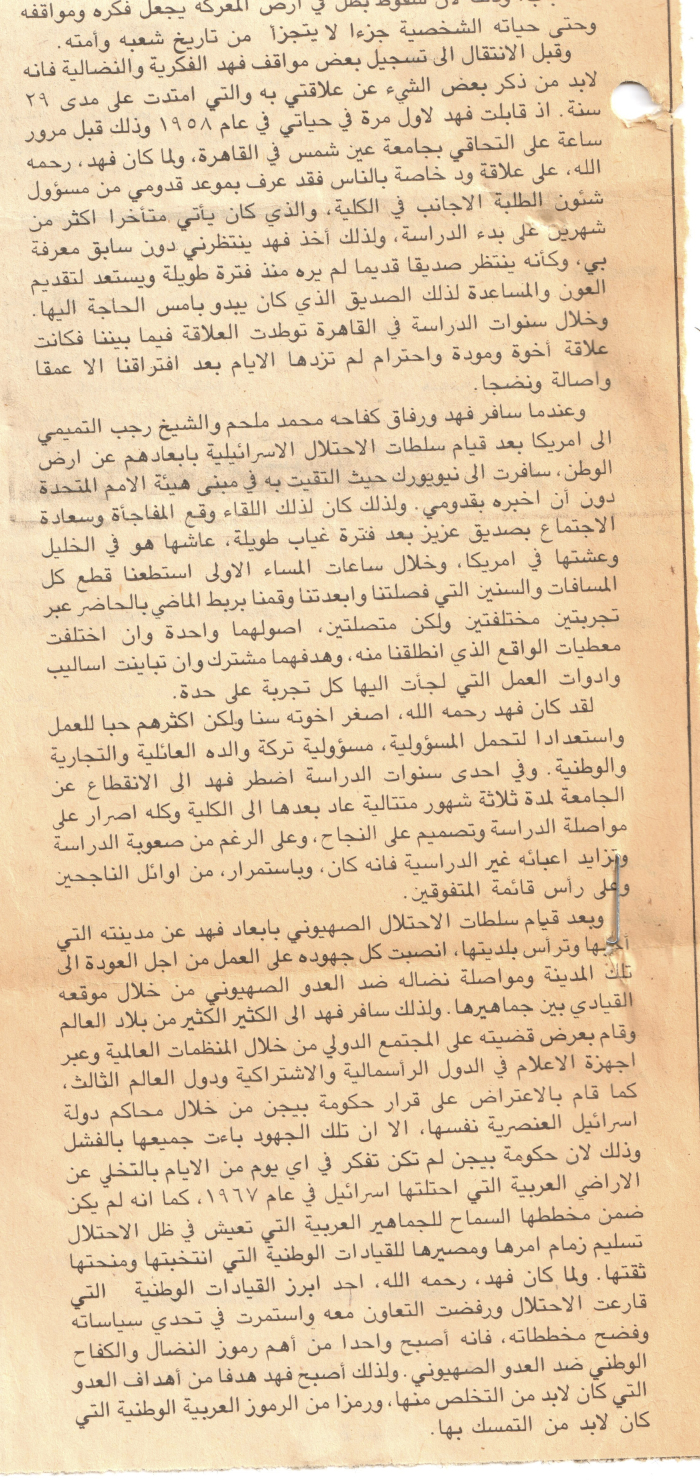 سقوط بطل في ارض المعركة يجعل فكره ومواقفه
وحتى حياته الشخصية جزءا لا يتجزأ من تاريخ شعبه وأمته.
وقبل الانتقال الى تسجيل بعض مواقف فهد الفكرية والنضالية فانه
لابد من ذكر بعض الشيء عن علاقتي به والتي امتدت على مدى ٢٩
سنة. اذ قابلت فهد لاول مرة في حياتي في عام ١٩٥٨ وذلك قبل مرور
ساعة على التحاقي بجامعة عين شمس في القاهرة، ولما كان فهد، رحمه
الله، على علاقة ود خاصة بالناس فقد عرف بموعد قدومي من مسؤول
شئون الطلبة الاجانب في الكلية، والذي كان يأتي متأخرا اكثر من
شهرين على بدء الدراسة، ولذلك أخذ فهد ينتظرني دون سابق معرفة
بي، وكأنه ينتظر صديقا قديما لم يره منذ فترة طويلة ويستعد لتقديم
العون والمساعدة لذلك الصديق الذي كان يبدو بامس الحاجة اليها.
وخلال سنوات الدراسة في القاهرة توطدت العلاقة فيما بيننا فكانت
علاقة أخوة ومودة واحترام لم تزدها الايام بعد افتراقنا الا عمقا
واصالة ونضجا.
وعندما سافر فهد ورفاق كفاحه محمد ملحم والشيخ رجب التميمي
الى امريكا بعد قيام سلطات الاحتلال الاسرائيلية بابعادهم عن ارض
الوطن، سافرت الى نيويورك حيث التقيت به في مبنى هيئة الامم المتحدة
دون أن اخبره بقدومي. ولذلك كان لذلك اللقاء وقع المفاجأة وسعادة
الاجتماع بصديق عزيز بعد فترة غياب طويلة، عاشها هو في الخليل
وعشتها في امريكا، وخلال ساعات المساء الاولى استطعنا قطع كل
المسافات والسنين التي فصلتنا وابعدتنا وقمنا بربط الماضي بالحاضر عبر
تجربتين مختلفتين ولكن متصلتين، اصولهما واحدة وان اختلفت
معطيات الواقع الذي انطلقنا منه، وهدفهما مشترك وان تباينت اساليب
وادوات العمل التي لجأت اليها كل تجربة على حدة.
لقد كان فهد رحمه الله، اصغر اخوته سنا ولكن اكثرهم حبا للعمل
واستعدادا لتحمل المسؤولية، مسؤولية تركة والده العائلية والتجارية
والوطنية. وفي احدى سنوات الدراسة اضطر فهد الى الانقطاع عن
الجامعة لمدة ثلاثة شهور متتالية عاد بعدها الى الكلية وكله اصرار على
مواصلة الدراسة وتصميم على النجاح، وعلى الرغم من صعوبة الدراسة
وتزايد اعبائه غير الدراسية فانه كان، وباستمرار، من اوائل الناجحين
وعلى رأس قائمة المتفوقين.
وبعد قيام سلطات الاحتلال الصهيوني بابعاد فهد عن مدينته التي
أحبها وترأس بلديتها، انصبت كل جهوده على العمل من اجل العودة الى
تلك المدينة ومواصلة نضاله ضد العدو الصهيوني من خلال موقعه
القيادي بين جماهيرها. ولذلك سافر فهد الى الكثير الكثير من بلاد العالم
وقام بعرض قضيته على المجتمع الدولي من خلال المنظمات العالمية وعبر
اجهزة الاعلام في الدول الرأسمالية والاشتراكية ودول العالم الثالث،
كما قام بالاعتراض على قرار حكومة بيجن من خلال محاكم دولة
اسرائيل العنصرية نفسها، الا ان تلك الجهود باءت جميعها بالفشل
وذلك لان حكومة بيجن لم تكن تفكر في اي يوم من الايام بالتخلي عن
الاراضي العربية التي احتلتها اسرائيل في عام ١٩٦٧، كما انه لم يكن
ضمن مخططها السماح للجماهير العربية التي تعيش في ظل الاحتلال
تسليم زمام امرها ومصيرها للقيادات الوطنية التي انتخبتها ومنحتها
ثقتها. ولما كان فهد، رحمه الله، احد ابرز القيادات الوطنية التي
قارعت الاحتلال ورفضت التعاون معه واستمرت في تحدي سياساته
وفضح مخططاته، فانه أصبح واحدا من أهم رموز النضال والكفاح
الوطني ضد العدو الصهيوني. ولذلك أصبح فهد هدفا من أهداف العدو
التي كان لابد من التخلص منها، ورمزا من الرموز العربية الوطنية التي
كان لابد من التمسك بها.